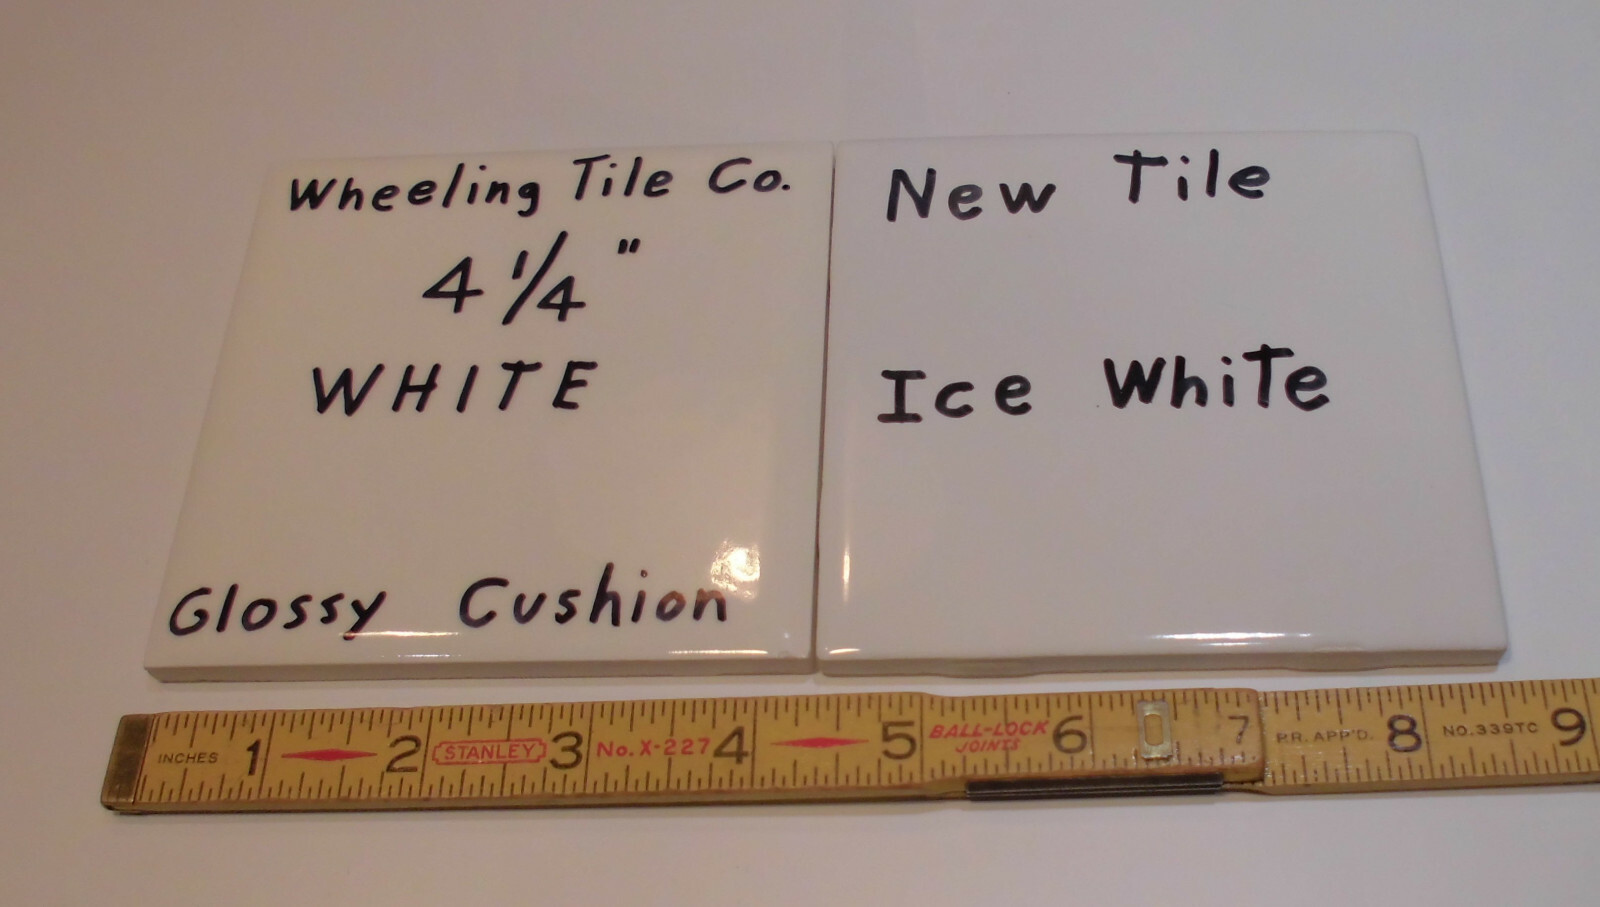 Wheeling Tile Co.
4 1/4"
WHITE
Glossy Cushion
New Tile
Ice White
INCHES 1 2 STANLEY 3 No. X-227 4 5 BALL-LOCK JOINTS 6 7 P.R. APP'D. 8 NO. 339TC 9